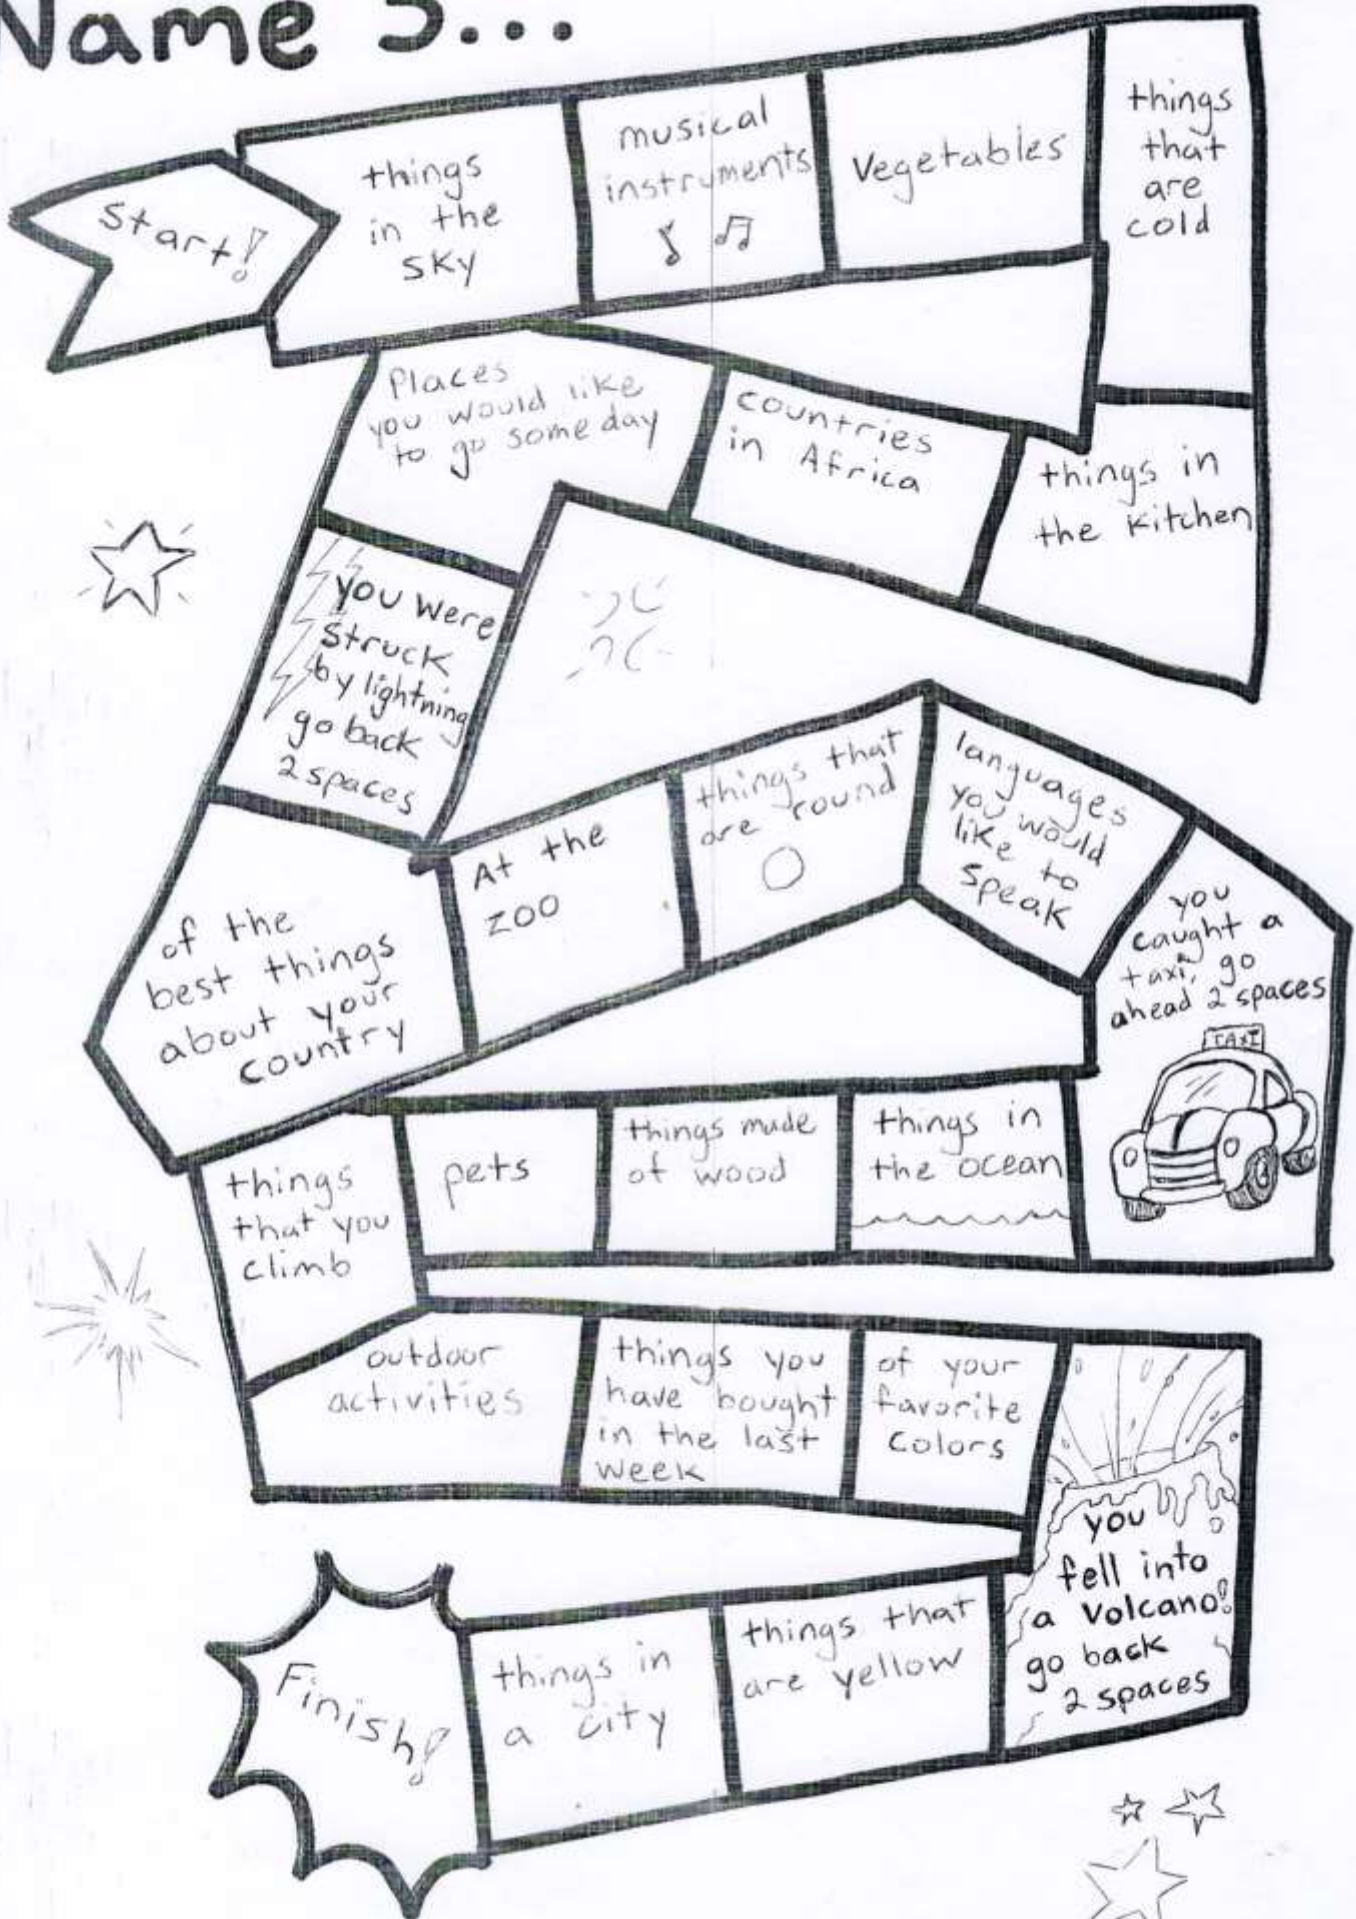 Name ...
Start!
things
in the
sky
musical
instruments
Vegetables
things
that
are
cold
things in
the kitchen
countries
in Africa
Places
you would like
to go some day
you were
struck
by lightning
go back
2 spaces
of the
best things
about your
country
At the
zoo
things that
are round
languages
you would
like to
speak
you
caught a
taxi, go
ahead 2 spaces
TAXI
things in
the ocean
things made
of wood
pets
things
that you
climb
outdoor
activities
things you
have bought
in the last
week
of your
favorite
colors
you
fell into
a volcano!
go back
2 spaces
things that
are yellow
things in
a city
Finish!